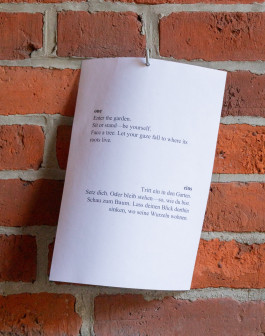 one
Enter the garden.
Sit or stand – be yourself.
Face a tree. Let your gaze fall to where its
roots live.
eins
Tritt ein in den Garten
Setz dich. Oder bleib stehen – so, wie du bist
Schau zum Baum. Lass deinen Blick dorthin
sinken, wo seine Wurzeln wohnen.